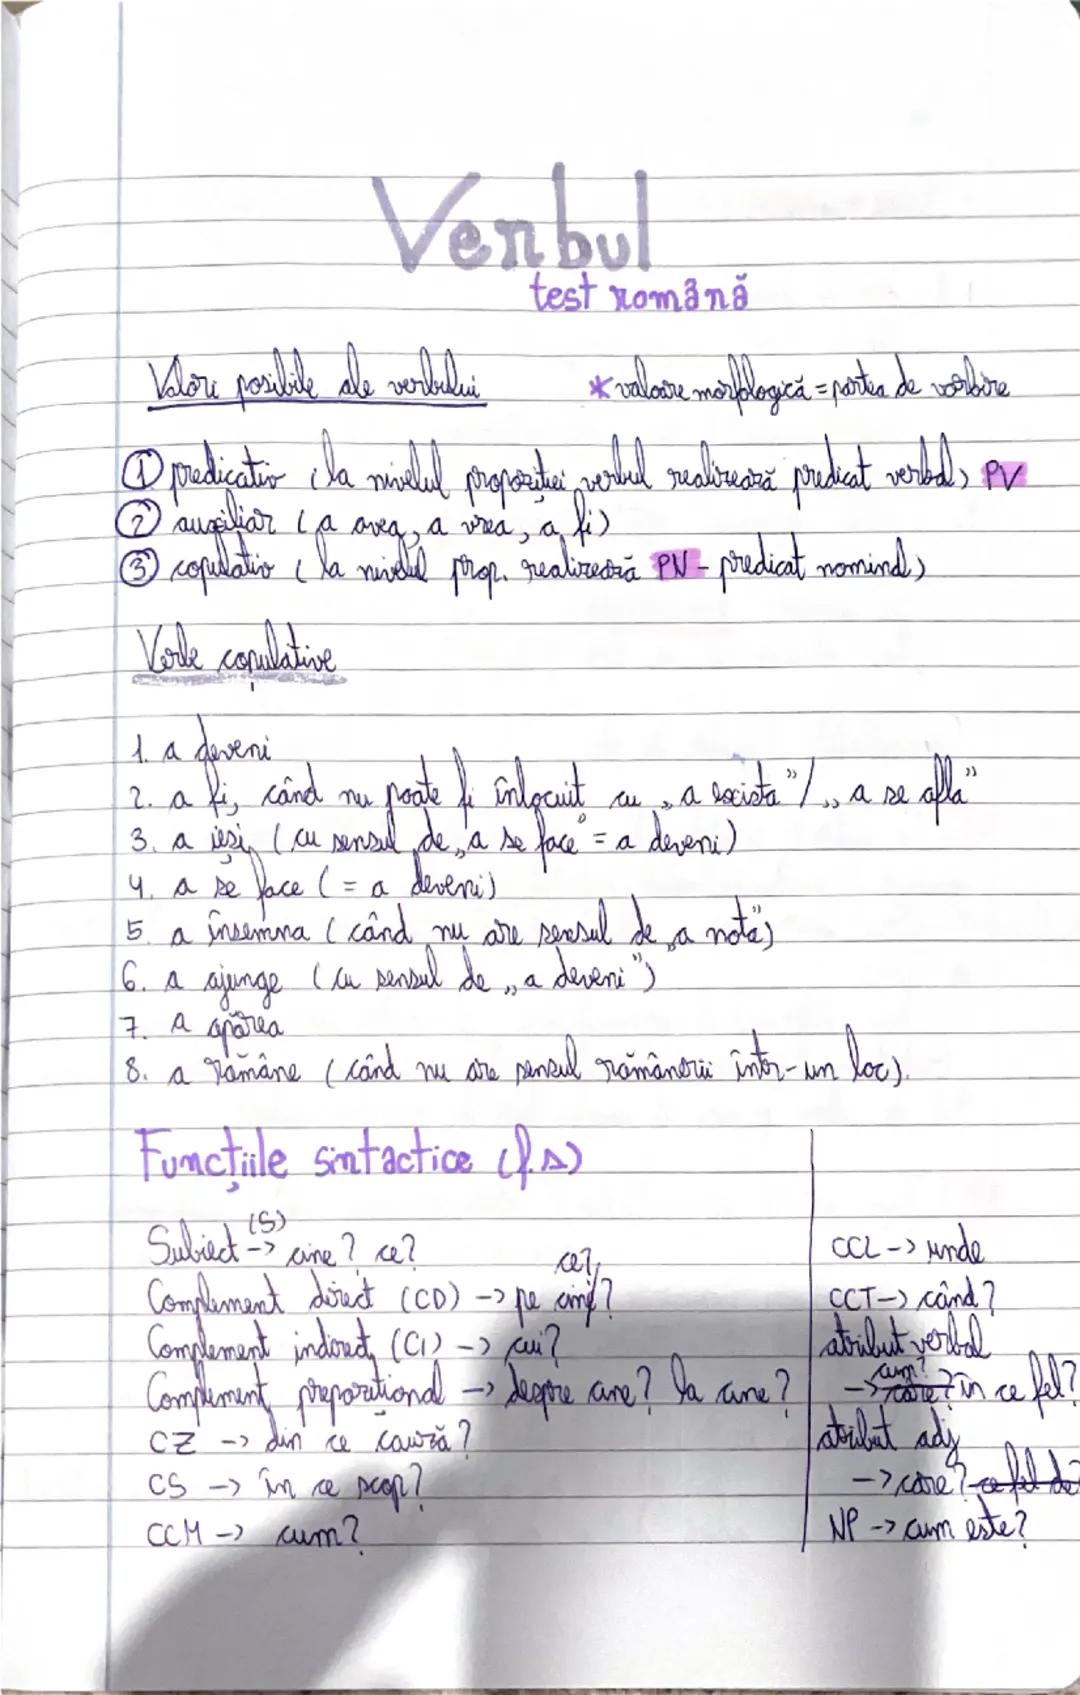 Verbul
test română
Valori posibile ale verbului
* valoare morfologică = partea de vorbire
① predicativ (la nivelul propoziției verbul realizează predicat verbal) PV
② auxiliar (a avea, a vrea, a fi)
③ copulativ (la nivelul prop. realizează PN - predicat nominal)
Verbe copulative
1. a deveni
2. a fi, când nu poate fi înlocuit cu „a exista"/„a se afla"
3. a ieși (cu sensul de „a se face" = a deveni)
4. a se face (= a deveni)
5. a însemna (când nu are sensul de „a nota")
6. a ajunge (cu sensul de „a deveni")
7. a apărea
8. a rămâne (când nu are sensul rămânerii într-un loc).
Funcțiile sintactice (f.s)
Subiect (S) -> cine? ce?
Complement direct (CD) -> pe cine? ce?
Complement indirect (CI) -> cui?
Complement prepozițional -> despre cine? la cine?
CZ -> din ce cauză?
CS -> în ce scop?
CCM -> cum?
CCL -> unde
CCT -> când?
atribut verbal
cum?
-> care? în ce fel?
atribut adj
-> care? ce fel de?
NP -> cum este?